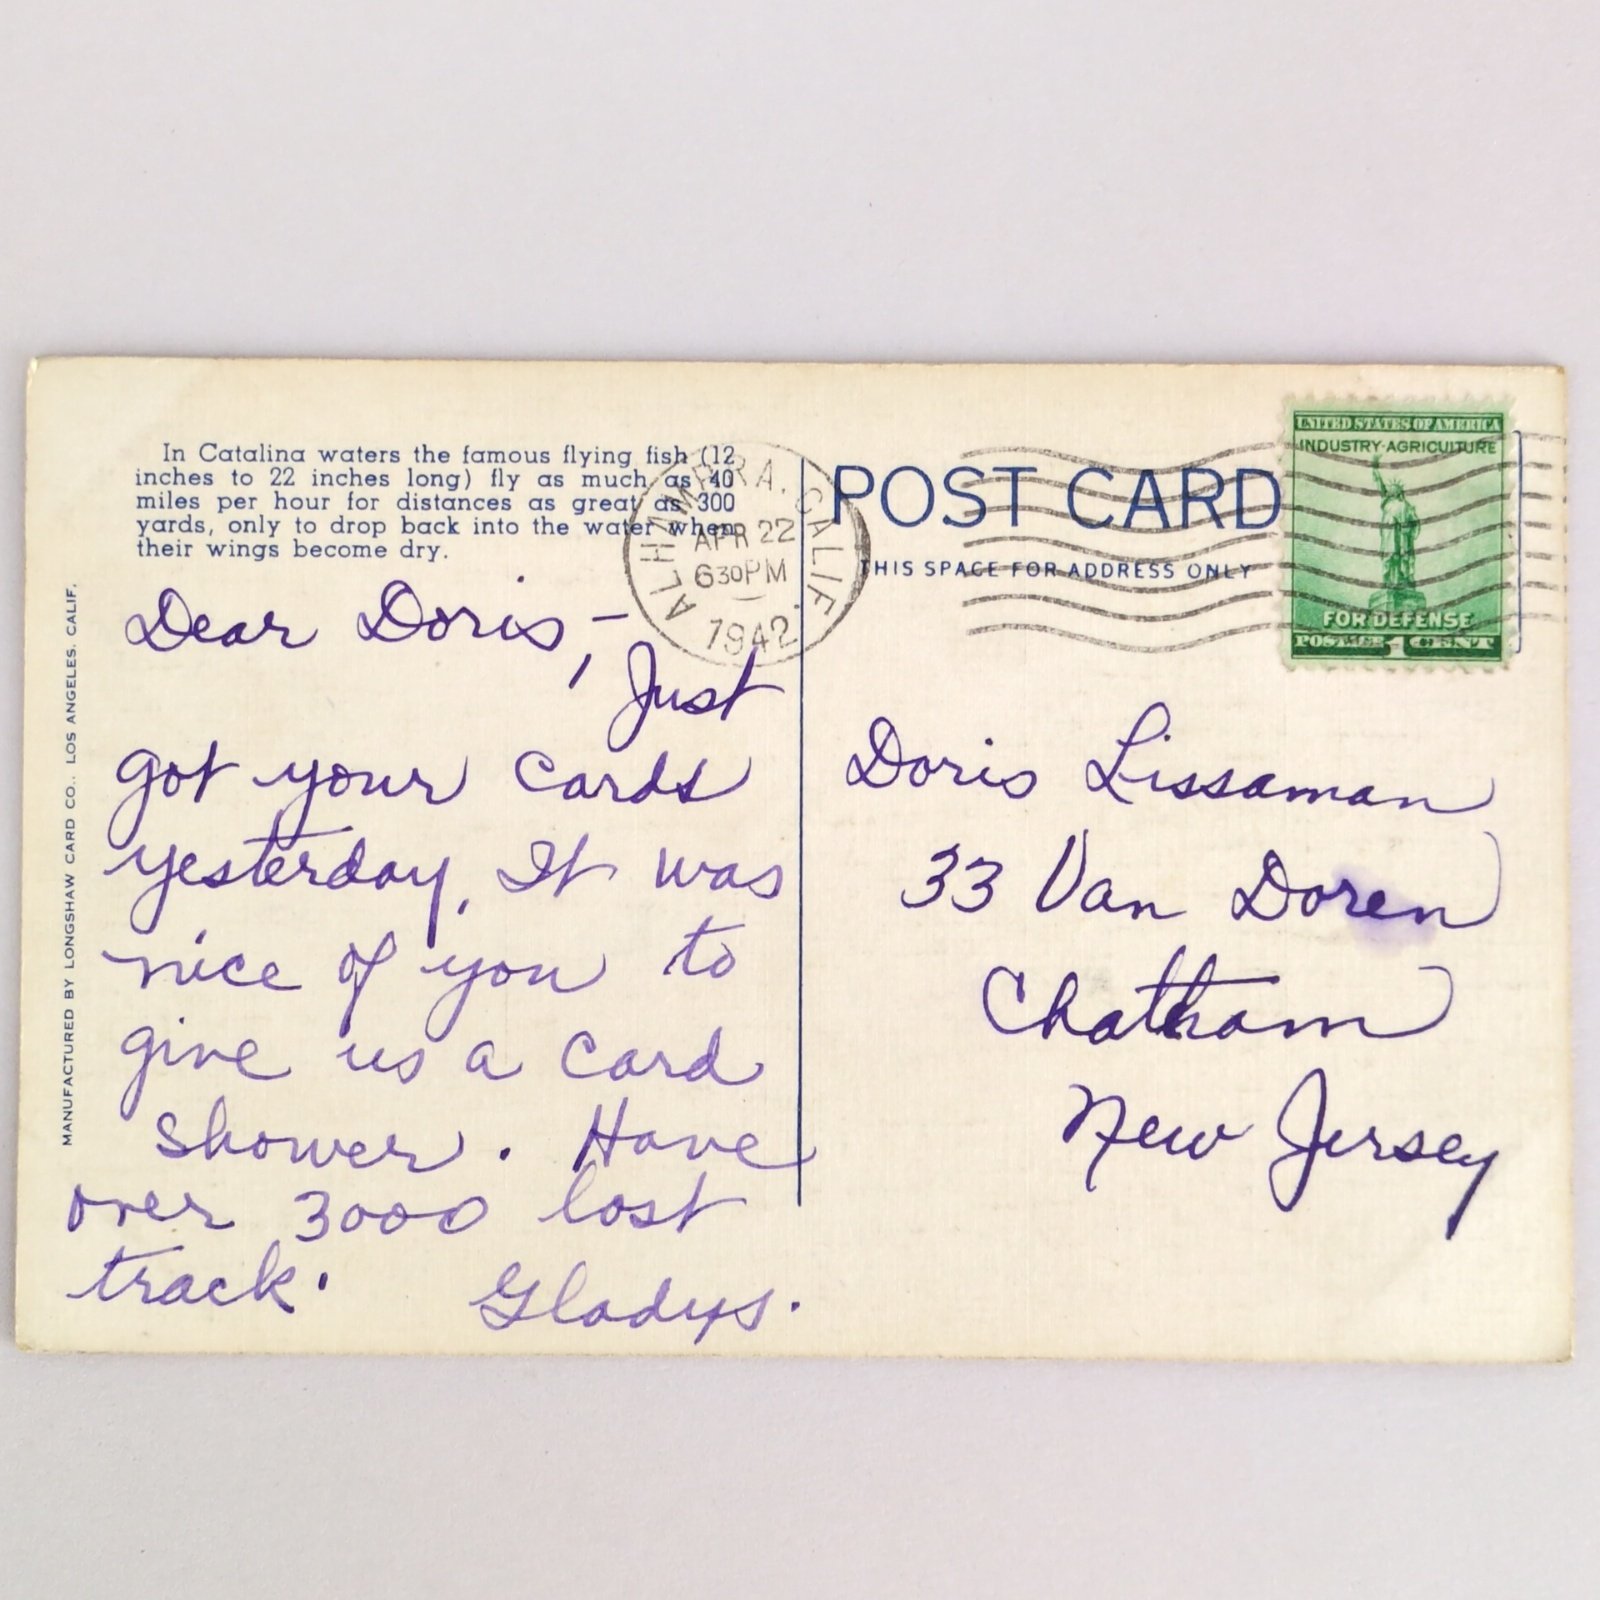 In Catalina waters the famous flying fish (12
inches to 22 inches long) fly as much as 40
miles per hour for distances as great as 300
yards, only to drop back into the water when
their wings become dry.
MANUFACTURED BY LONGSHAW CARD CO., LOS ANGELES, CALIF.
Dear Doris,-
Just
got your cards
yesterday, It was
nice of you to
give us a card
shower. Have
over 3000 lost
track.
Gladys.
ALHAMBRA, CALIF
APR 22
630PM
1942
POST CARD
THIS SPACE FOR ADDRESS ONLY
UNITED STATES OF AMERICA
INDUSTRY·AGRICULTURE
FOR DEFENSE
POSTAGE 1 CENT
Doris Lissaman
33 Van Doren
Chatham
New Jersey